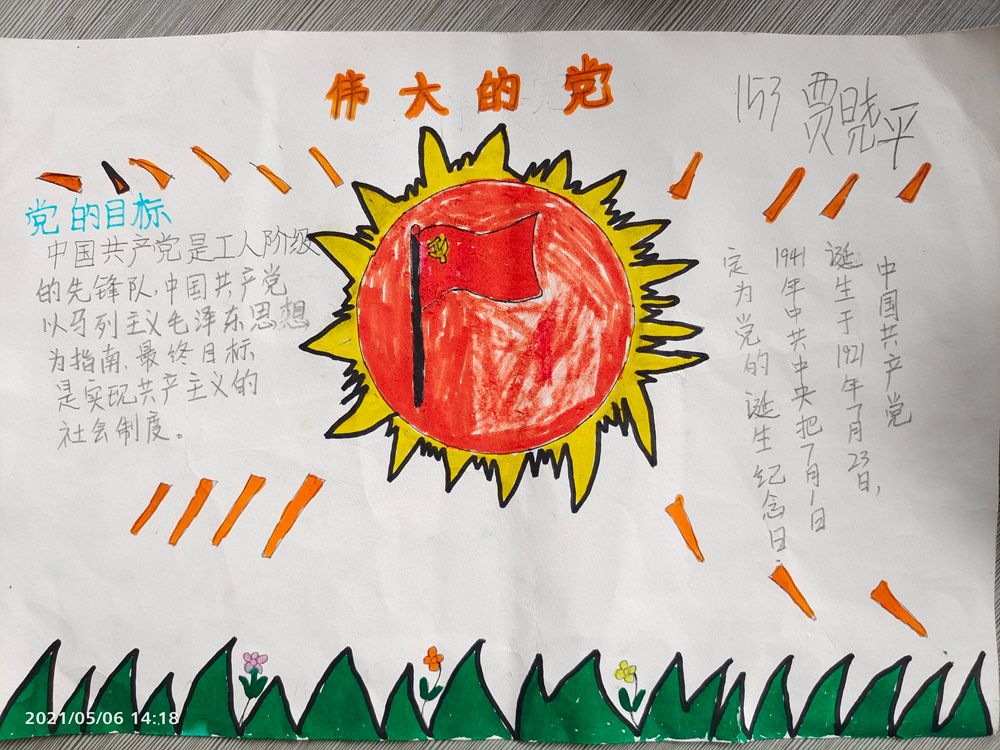 伟大的党
153 贾晓平
党的目标
中国共产党是工人阶级
的先锋队,中国共产党
以马列主义毛泽东思想
为指南,最终目标
是实现共产主义的
社会制度。
中国共产党
诞生于1921年7月23日,
1941年中共中央把7月1日
定为党的诞生纪念日
2021/05/06 14:18